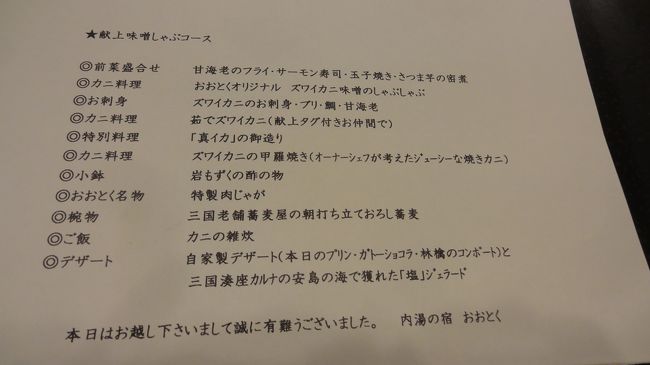 ★献上味噌しゃぶコース
◎前菜盛合せ 甘海老のフライ・サーモン寿司・玉子焼き・さつま芋の蜜煮
◎カニ料理 おおとくオリジナル ズワイカニ味噌のしゃぶしゃぶ
◎お刺身 ズワイカニのお刺身・ブリ・鯛・甘海老
◎カニ料理 茹でズワイカニ(献上タグ付きお仲間で)
◎特別料理 「真イカ」の御造り
◎カニ料理 ズワイカニの甲羅焼き(オーナーシェフが考えたジューシーな焼きカニ)
◎小鉢 岩もずくの酢の物
◎おおとく名物 特製肉じゃが
◎椀物 三国老舗蕎麦屋の朝打ち立ておろし蕎麦
◎ご飯 カニの雑炊
◎デザート 自家製デザート(本日のプリン・ガトーショコラ・林檎のコンポート)と
三国湊座カルナの安島の海で獲れた「塩」ジェラード
本日はお越し下さいまして誠に有難うございました。 内湯の宿 おおとく